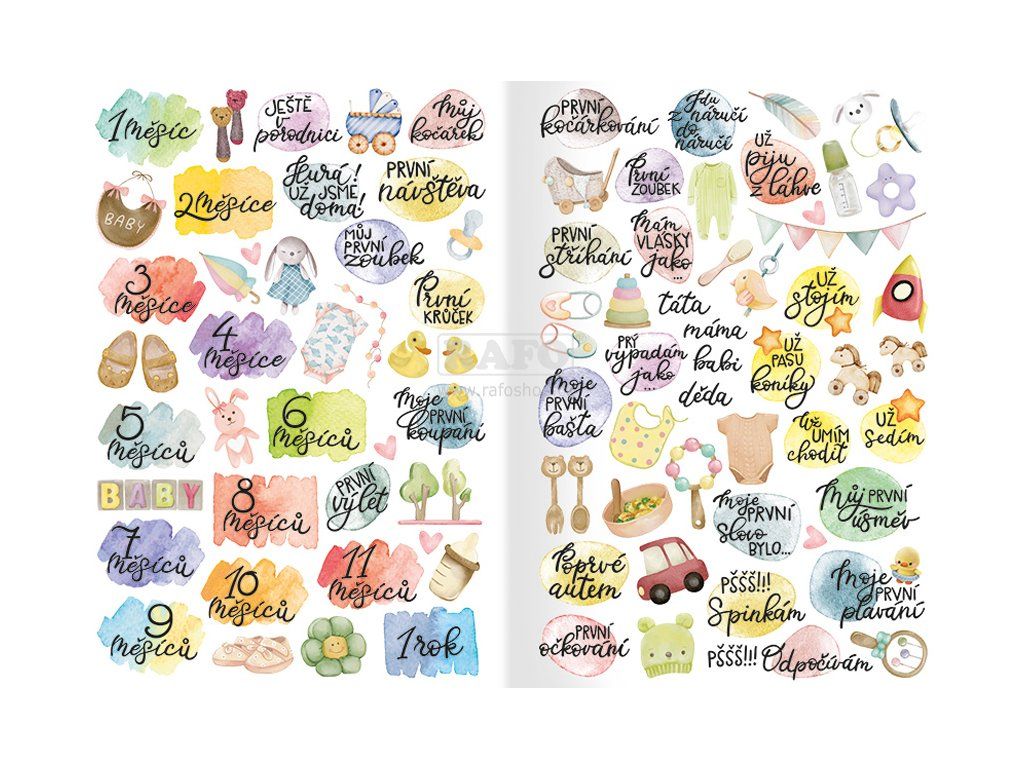 1 Měsíc
JEŠTĚ
v
porodnici
Můj
kočárek
BABY
2 Měsíce
Hurá!
UŽ JSME
doma!
PRVNÍ
návštěva
MŮJ
PRVNÍ
zoubek
3
Měsíce
První
KRŮČEK
4
Měsíce
5
Měsíců
6
Měsíců
Moje
PRVNÍ
koupání
BABY
8
Měsíců
PRVNÍ
výlet
7
Měsíců
10
Měsíců
11
Měsíců
9
Měsíců
1 rok
RAFO
www.rafosho
PRVNÍ
kočárkování
Jdu
z náručí
do
náručí
UŽ
piju
z lahve
První
ZOUBEK
PRVNÍ
stříhání
Mám
VLÁSKY
jako
...
UŽ
stojím
táta
máma
babi
děda
PRÝ
vypadám
jako
...
UŽ
PASU
koníky
Moje
PRVNÍ
bašta
UŽ
UMÍM
chodit
UŽ
sedím
Moje
PRVNÍ
slovo
BYLO...
Můj PRVNÍ
úsměv
Poprvé
autem
PŠŠŠ!!!
Spinkám
Moje
PRVNÍ
plavání
PRVNÍ
očkování
PŠŠŠ!!! Odpočívám